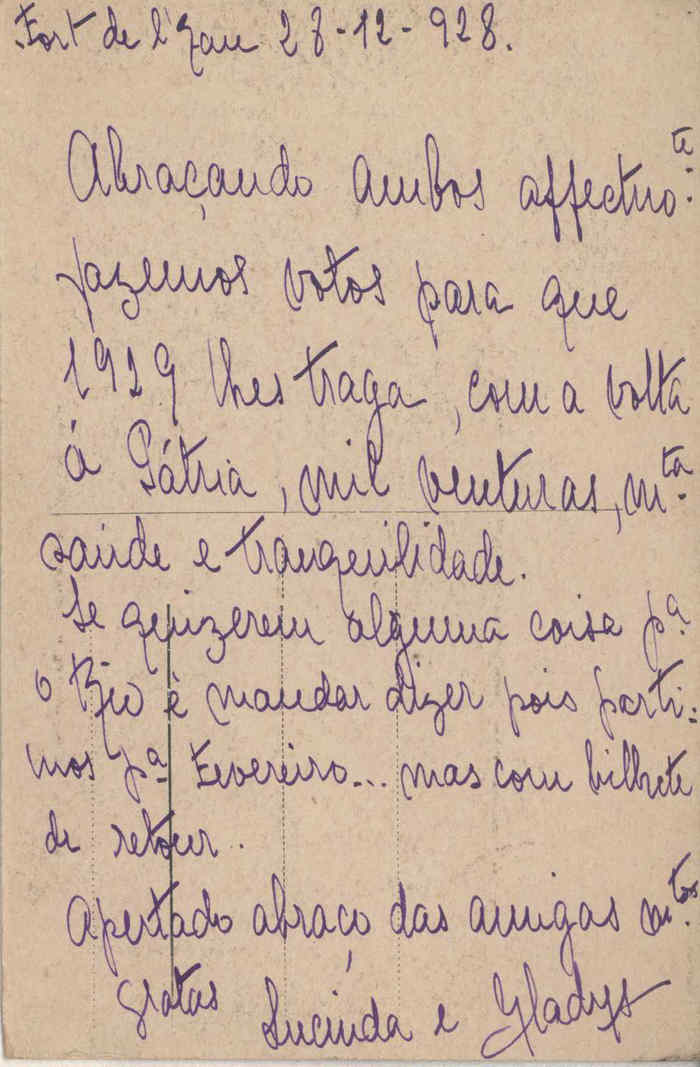 Fort de l'Eau 28-12-928.
Abraçando ambos affectuo.te
fazemos votos para que
1929 lhes traga, com a volta
á Pátria, mil venturas, m.ta
saúde e tranquilidade.
Se quizerem alguma coisa p.a
o Rio é mandar dizer pois parti-
mos p.a Fevereiro... mas com bilhete
de retour.
Apertado abraço das amigas m.tos
gratas Lucinda e Gladys